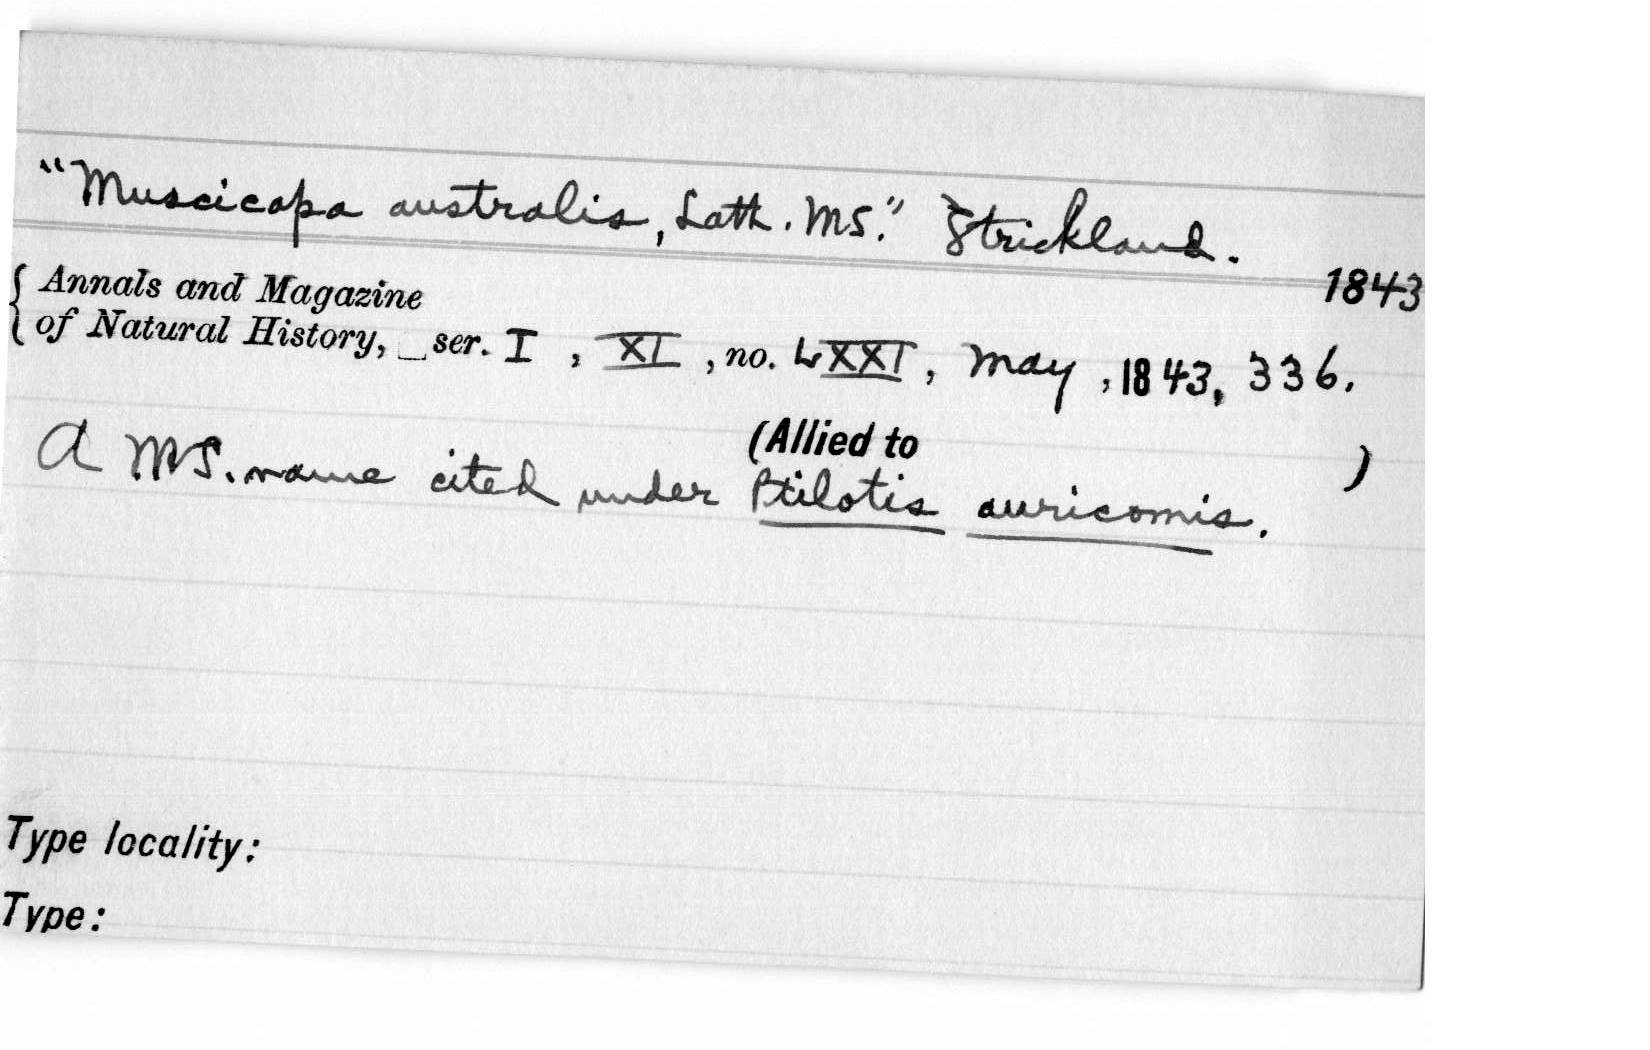 "Muscicapa australis, Lath. MS." Strickland.
1843
{ Annals and Magazine
{ of Natural History, _ser. I, XI, no. LXXI, May, 1843, 336.
(Allied to )
A MS. name cited under Ptilotis auricomis.
Type locality:
Type: